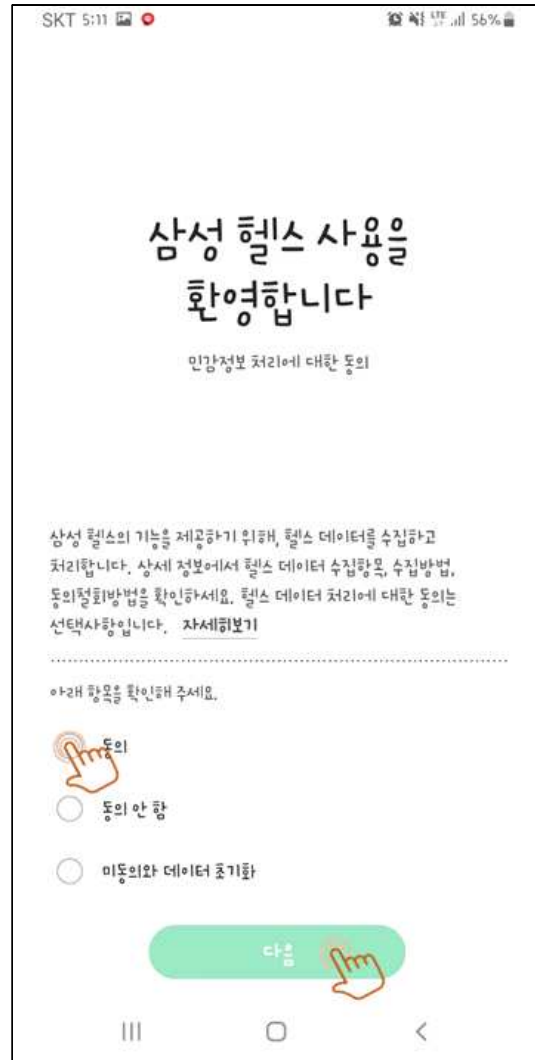 SKT 5:11
LTE 56%
삼성 헬스 사용을
환영합니다
민감정보 처리에 대한 동의
삼성 헬스의 기능을 제공하기 위해, 헬스 데이터를 수집하고
처리합니다. 상세 정보에서 헬스 데이터 수집항목, 수집방법,
동의철회방법을 확인하세요. 헬스 데이터 처리에 대한 동의는
선택사항입니다. 자세히보기
아래 항목을 확인해 주세요.
동의
동의 안 함
미동의와 데이터 초기화
다음